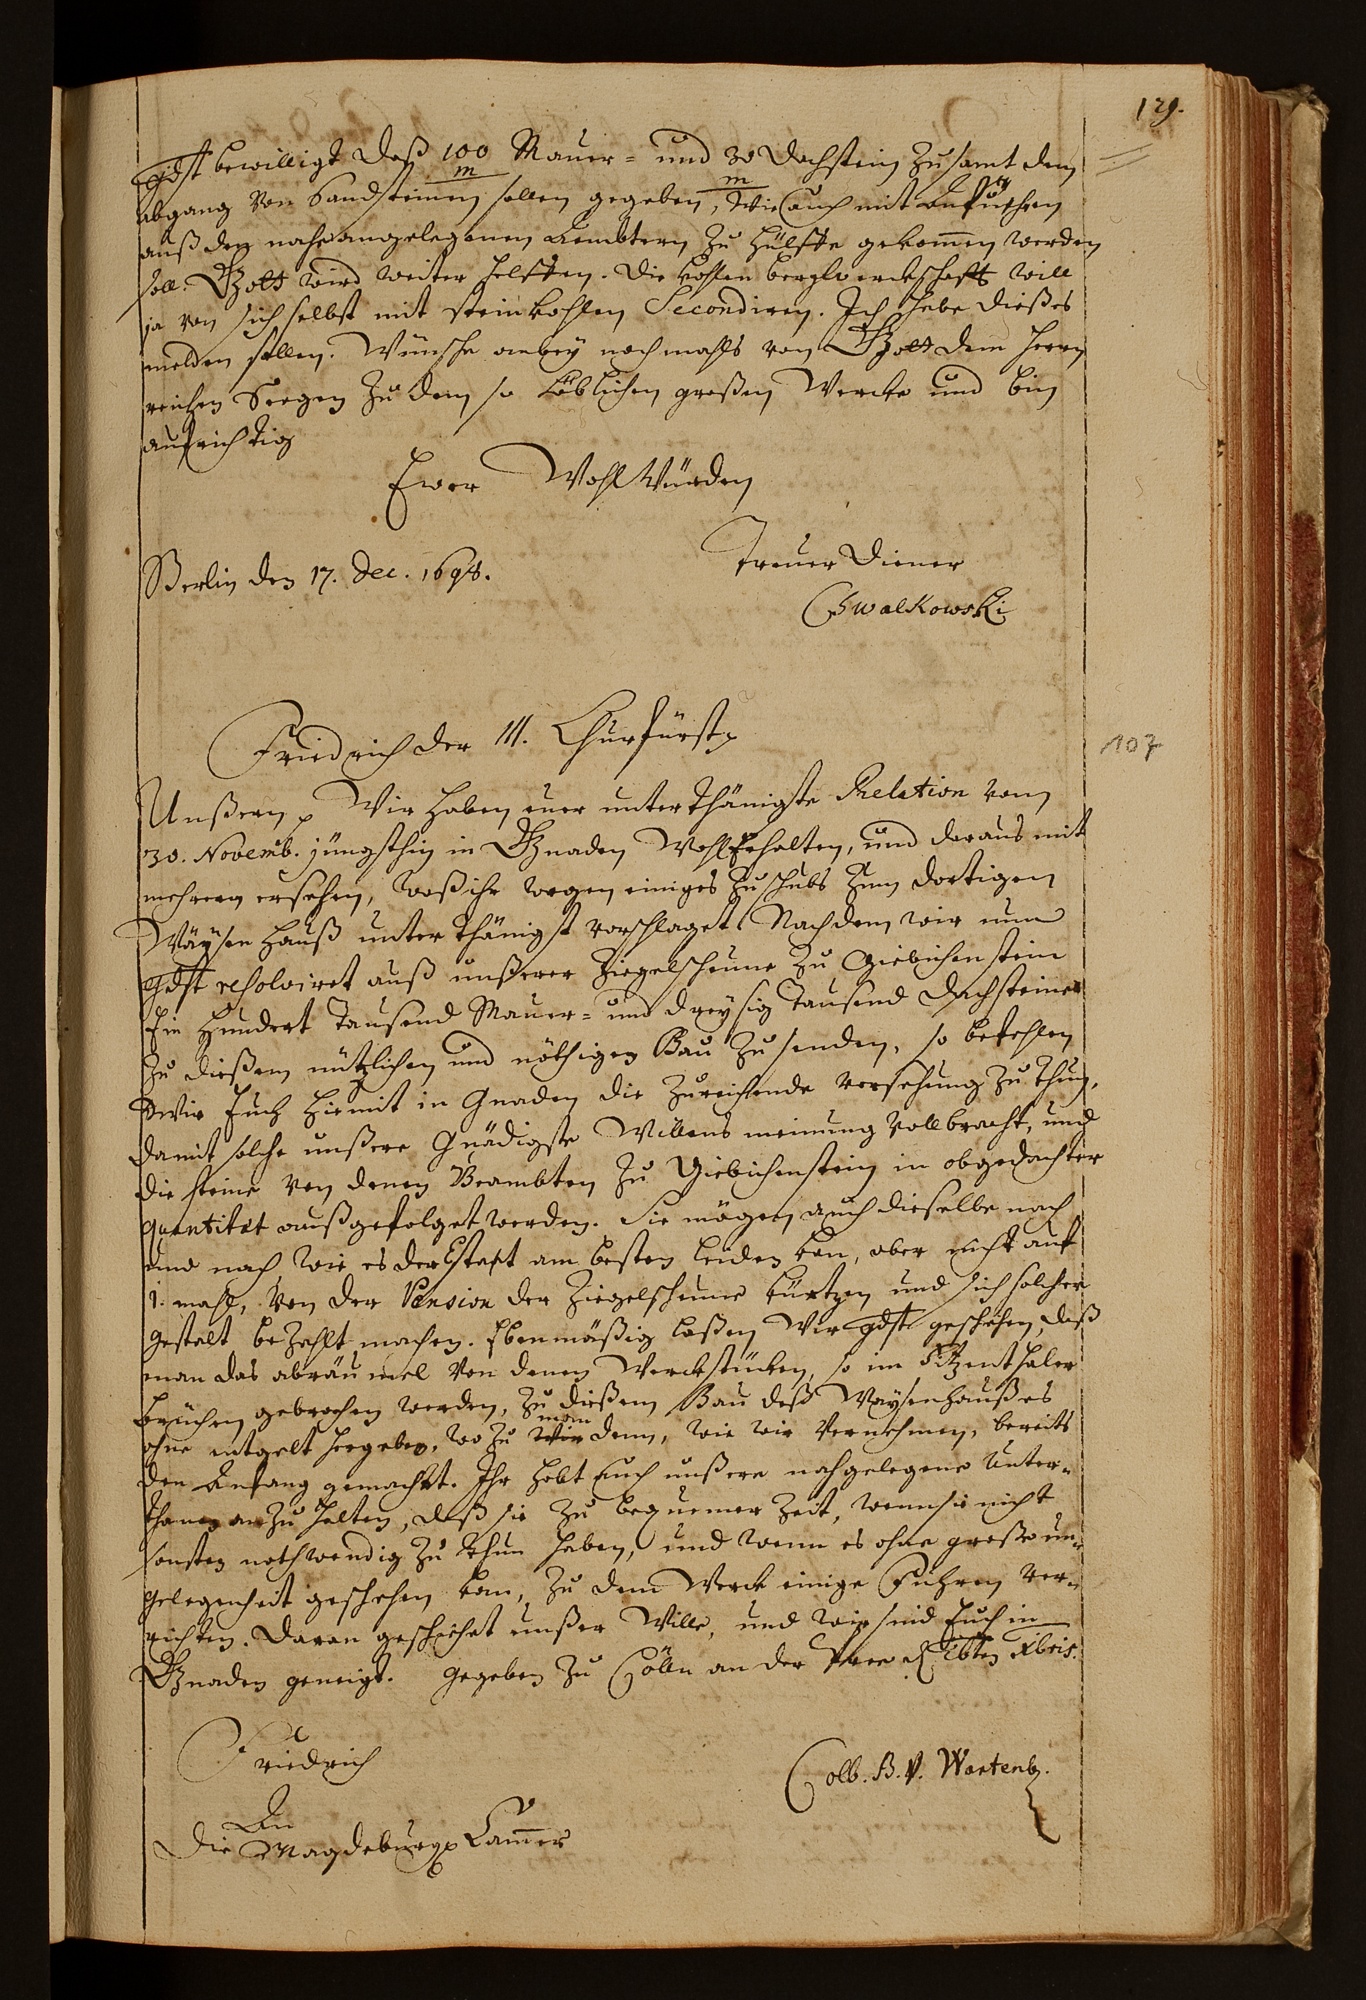 129.
gdst bewilligt daß 100 Mauer= und 30 Dachstein zusamt dem
m m
abgang von Sandsteinen sollen gegeben, wie auch mit Anfuhren
auß den nahe angelegenen Aembtern zu hülffe gekom̄en werden
soll. Gott wird weiter helffen. Die Kohlen bergkwerckschafft will
ja von sich selbst mit steinkohlen Secondiren. Ich habe dießes
melden sollen. Wünsche anbey nochmahls von Gott dem Herrn
reichen Seegen zu dem so löblichen großen Wercke und bin
aufrichtig
Ewer WohlWürden
Treuer Diener
Berlin den 17. Dec. 1698.
Chwalkowski
Friedrich der III. Churfürst
107
Unßern Wir haben euer unterthänigste Relation vom
30. Novemb. jüngsthin in Gnaden Wohl Erhalten, und daraus mit
mehrern ersehen, waß ihr wegen einiges Zuschubs zum dortigen
Wäysen Hauß unterthänigst vorschlaget. Nachdem wir nun
gdst resolviret auß unßerer Ziegelscheune zu Giebichenstein
Ein Hundert Tausend Mauer= und dreysig Tausend Dachsteine
zu dießem nützlichen und nöthigen Bau zu senden, so befehlen
Wir Euch hiemit in Gnaden die zureichende versehung zu thun,
damit solche unßere Gnädigste Willens meinung vollbracht, und
die steine von denen Beambten zu Giebichenstein in obgedachter
quantität außgefolget werden. Sie mögen auch dieselbe nach
und nach wie es der Estaft am besten leiden kan, aber nicht auf
1. mahl, von der Pension der Ziegelscheune kürtzen und sich solcher
gestalt bezahlt machen. Ebenmäßig laßen Wir gdst geschehen, daß
man das abräumel von denen Werckstücken, so im
brüchen gebrochen werden, zu dießem Bau deß Waysenhaußes
man
ohne entgelt hergeben, wozu wir denn, wie wir vernehmen, bereits
den Anfang gemacht. Ihr habt auch unßere nahgelegene Unter=
thanen anzuhalten, daß sie zu bequemer Zeit, wenn sie nicht
sonsten nothwendig zu thun haben, und wenn es ohne große un=
gelegenheit geschehen kan, zu dem Werck einige Fuhren ver=
richten. Daran geschiehet unßer Wille, und wir sind Euch in
Gnaden geneigt. Gegeben zu Cölln an der Spree Xbris.
Friedrich
Colb. B. V. Wartenb.
An
Die Magdeburg Cam̄er